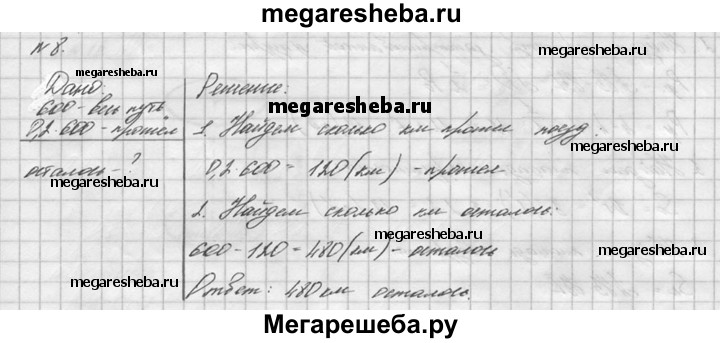 megaresheba.ru
N 8.
megaresheba.ru
Дано:
megaresheba.ru
600 - весь путь
0,2·600 - прошёл
осталось - ?
megaresheba.ru
megaresheba.ru
Решение:
megaresheba.ru
1. Найдем сколько км прошел поезд:
megaresheba.ru
0,2·600 = 120 (км) - прошел
2. Найдем сколько км осталось:
600 - 120 = 480 (км) - осталось
megaresheba.ru
Ответ: 480 км осталось.
megaresheba.ru
Мегарешеба.ру